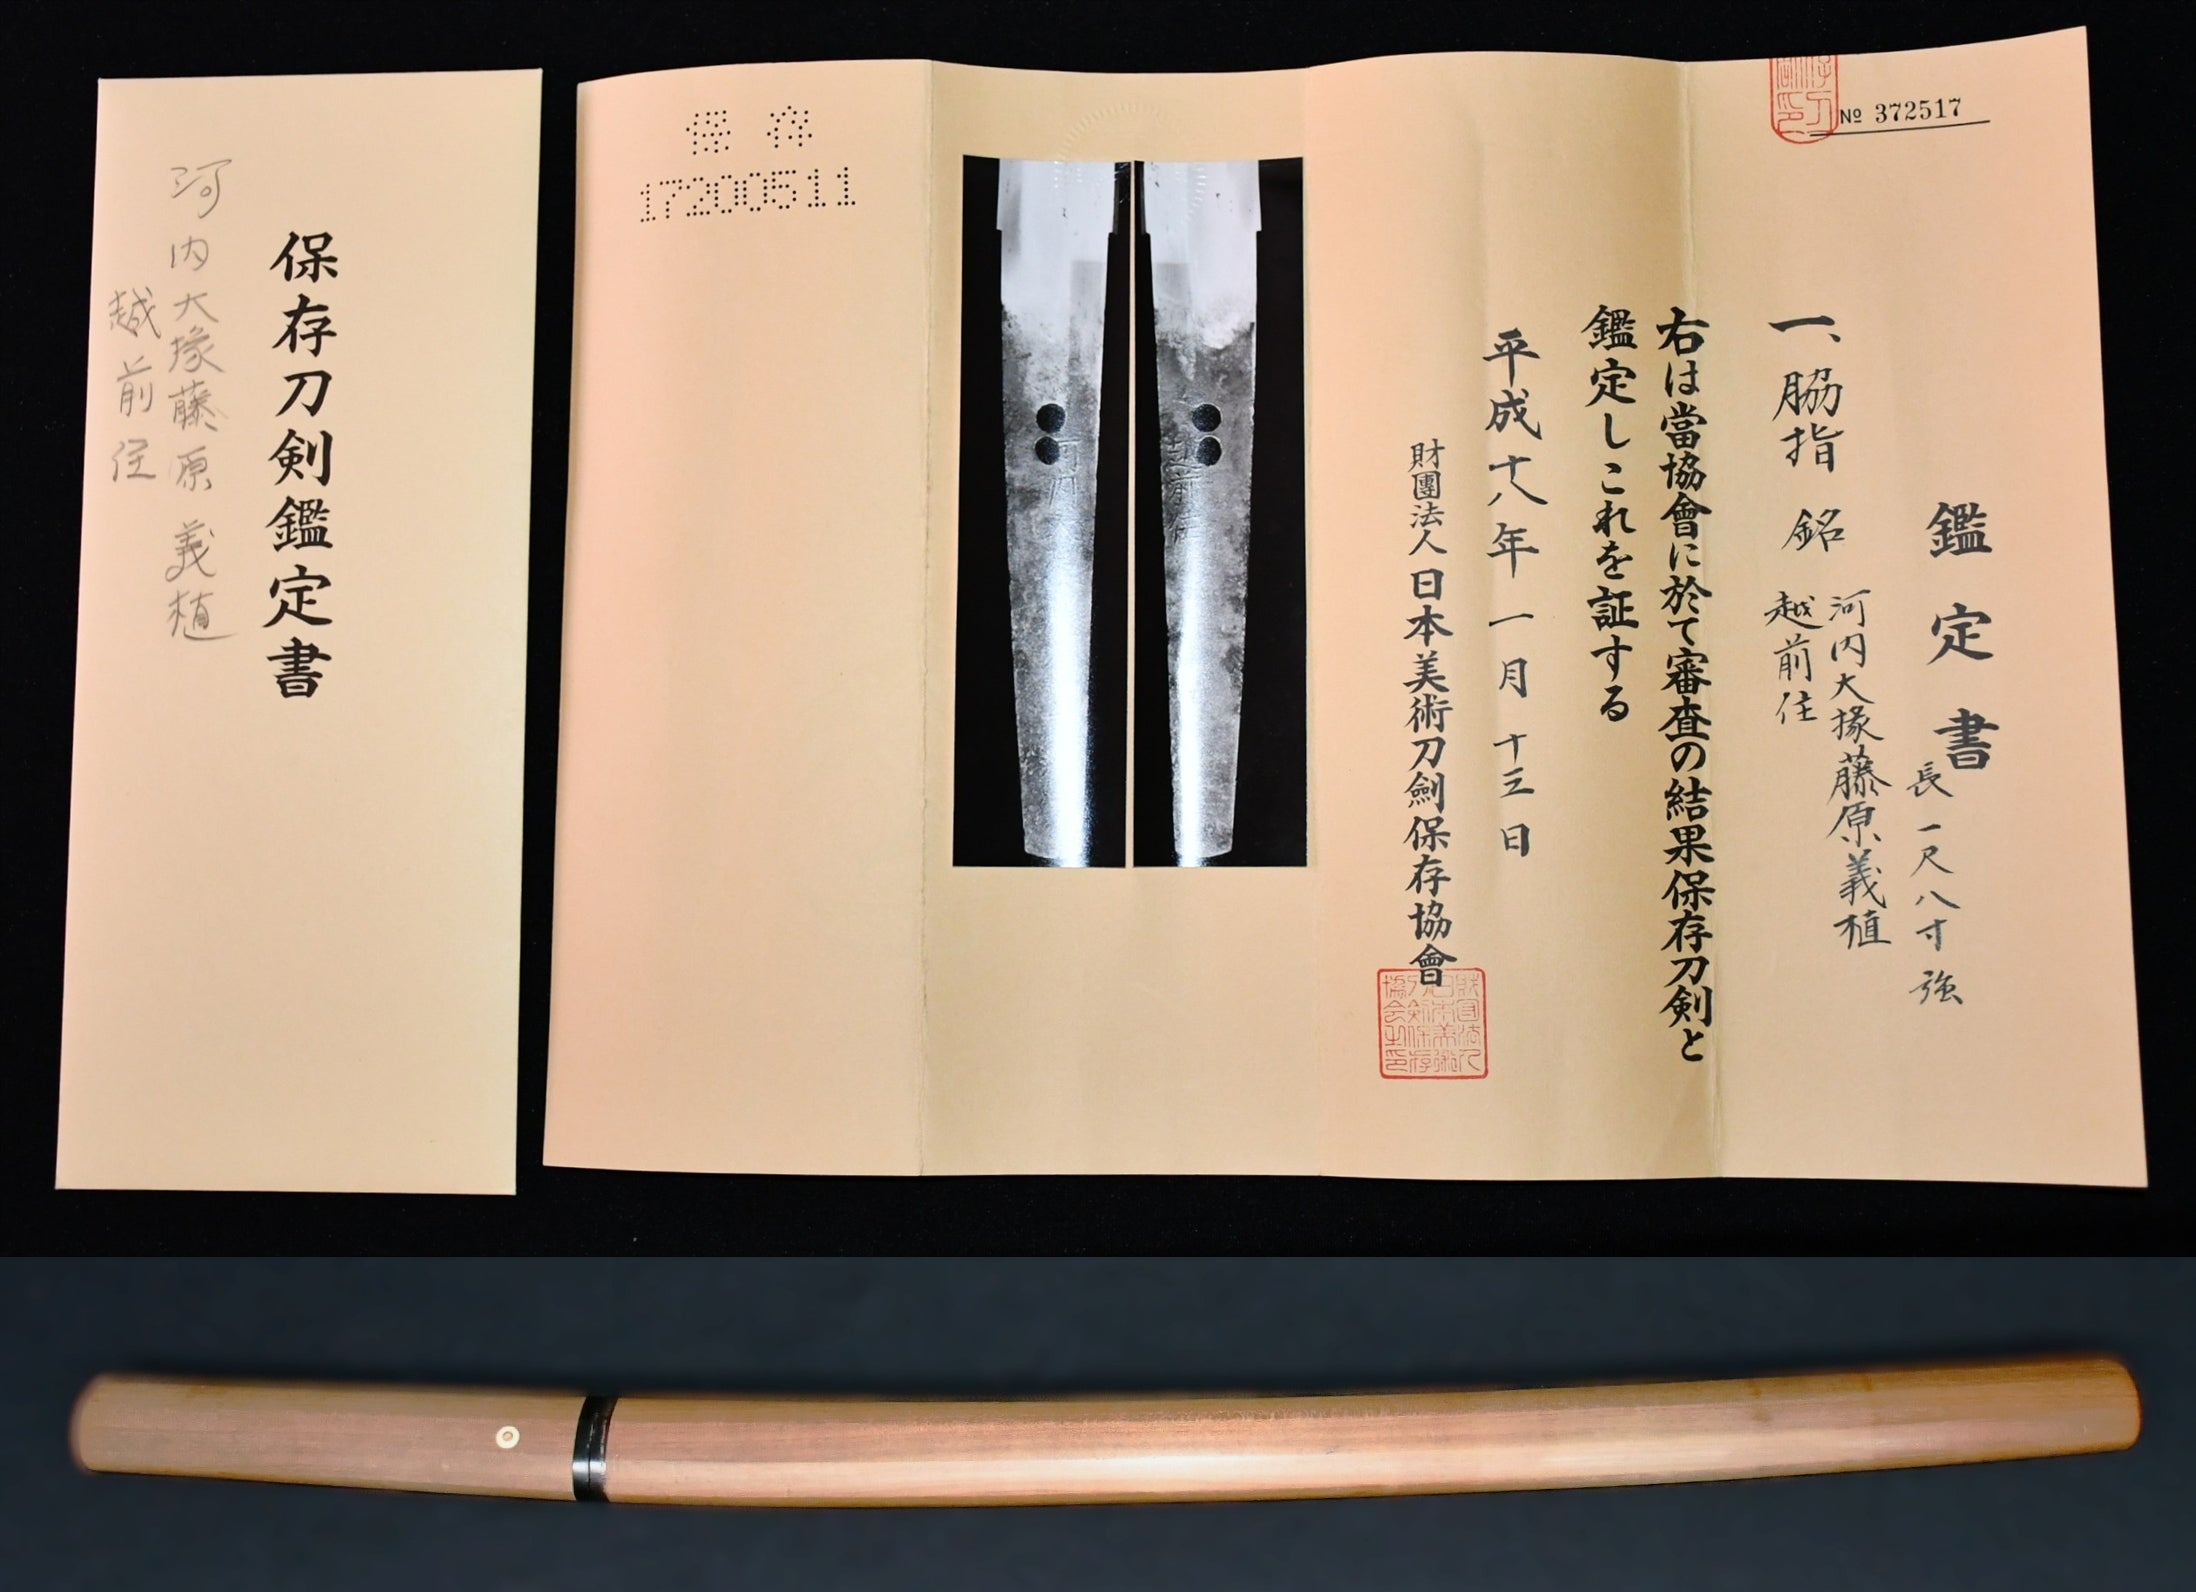 保存刀剣鑑定書
河内大掾藤原義植
越前住
No 372517
鑑定書
長一尺八寸強
一、脇指 銘
河内大掾藤原義植
越前住
右は當協會に於て審査の結果保存刀剣と
鑑定しこれを証する
平成十八年一月十三日
財團法人日本美術刀劍保存協會
保存
17200511
越前住